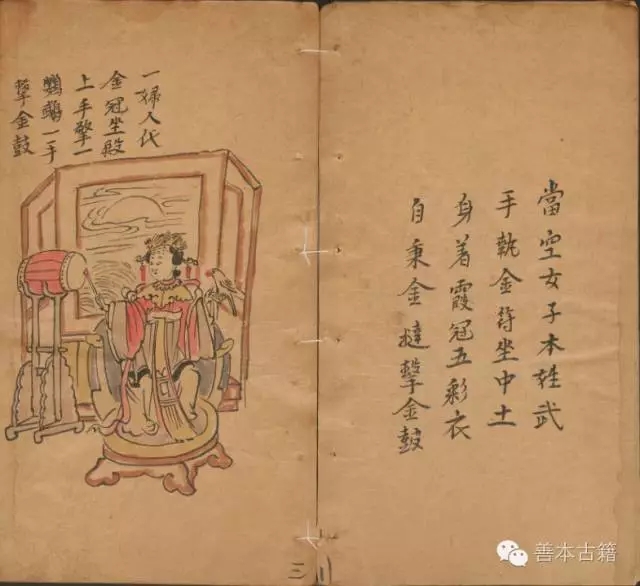 當空女子本姓武
手執金符坐中土
身着霞冠五彩衣
自秉金撾擊金鼓
一婦人代
金冠坐殿
上手擎一
鸚鵡一手
擊金鼓
三
善本古籍